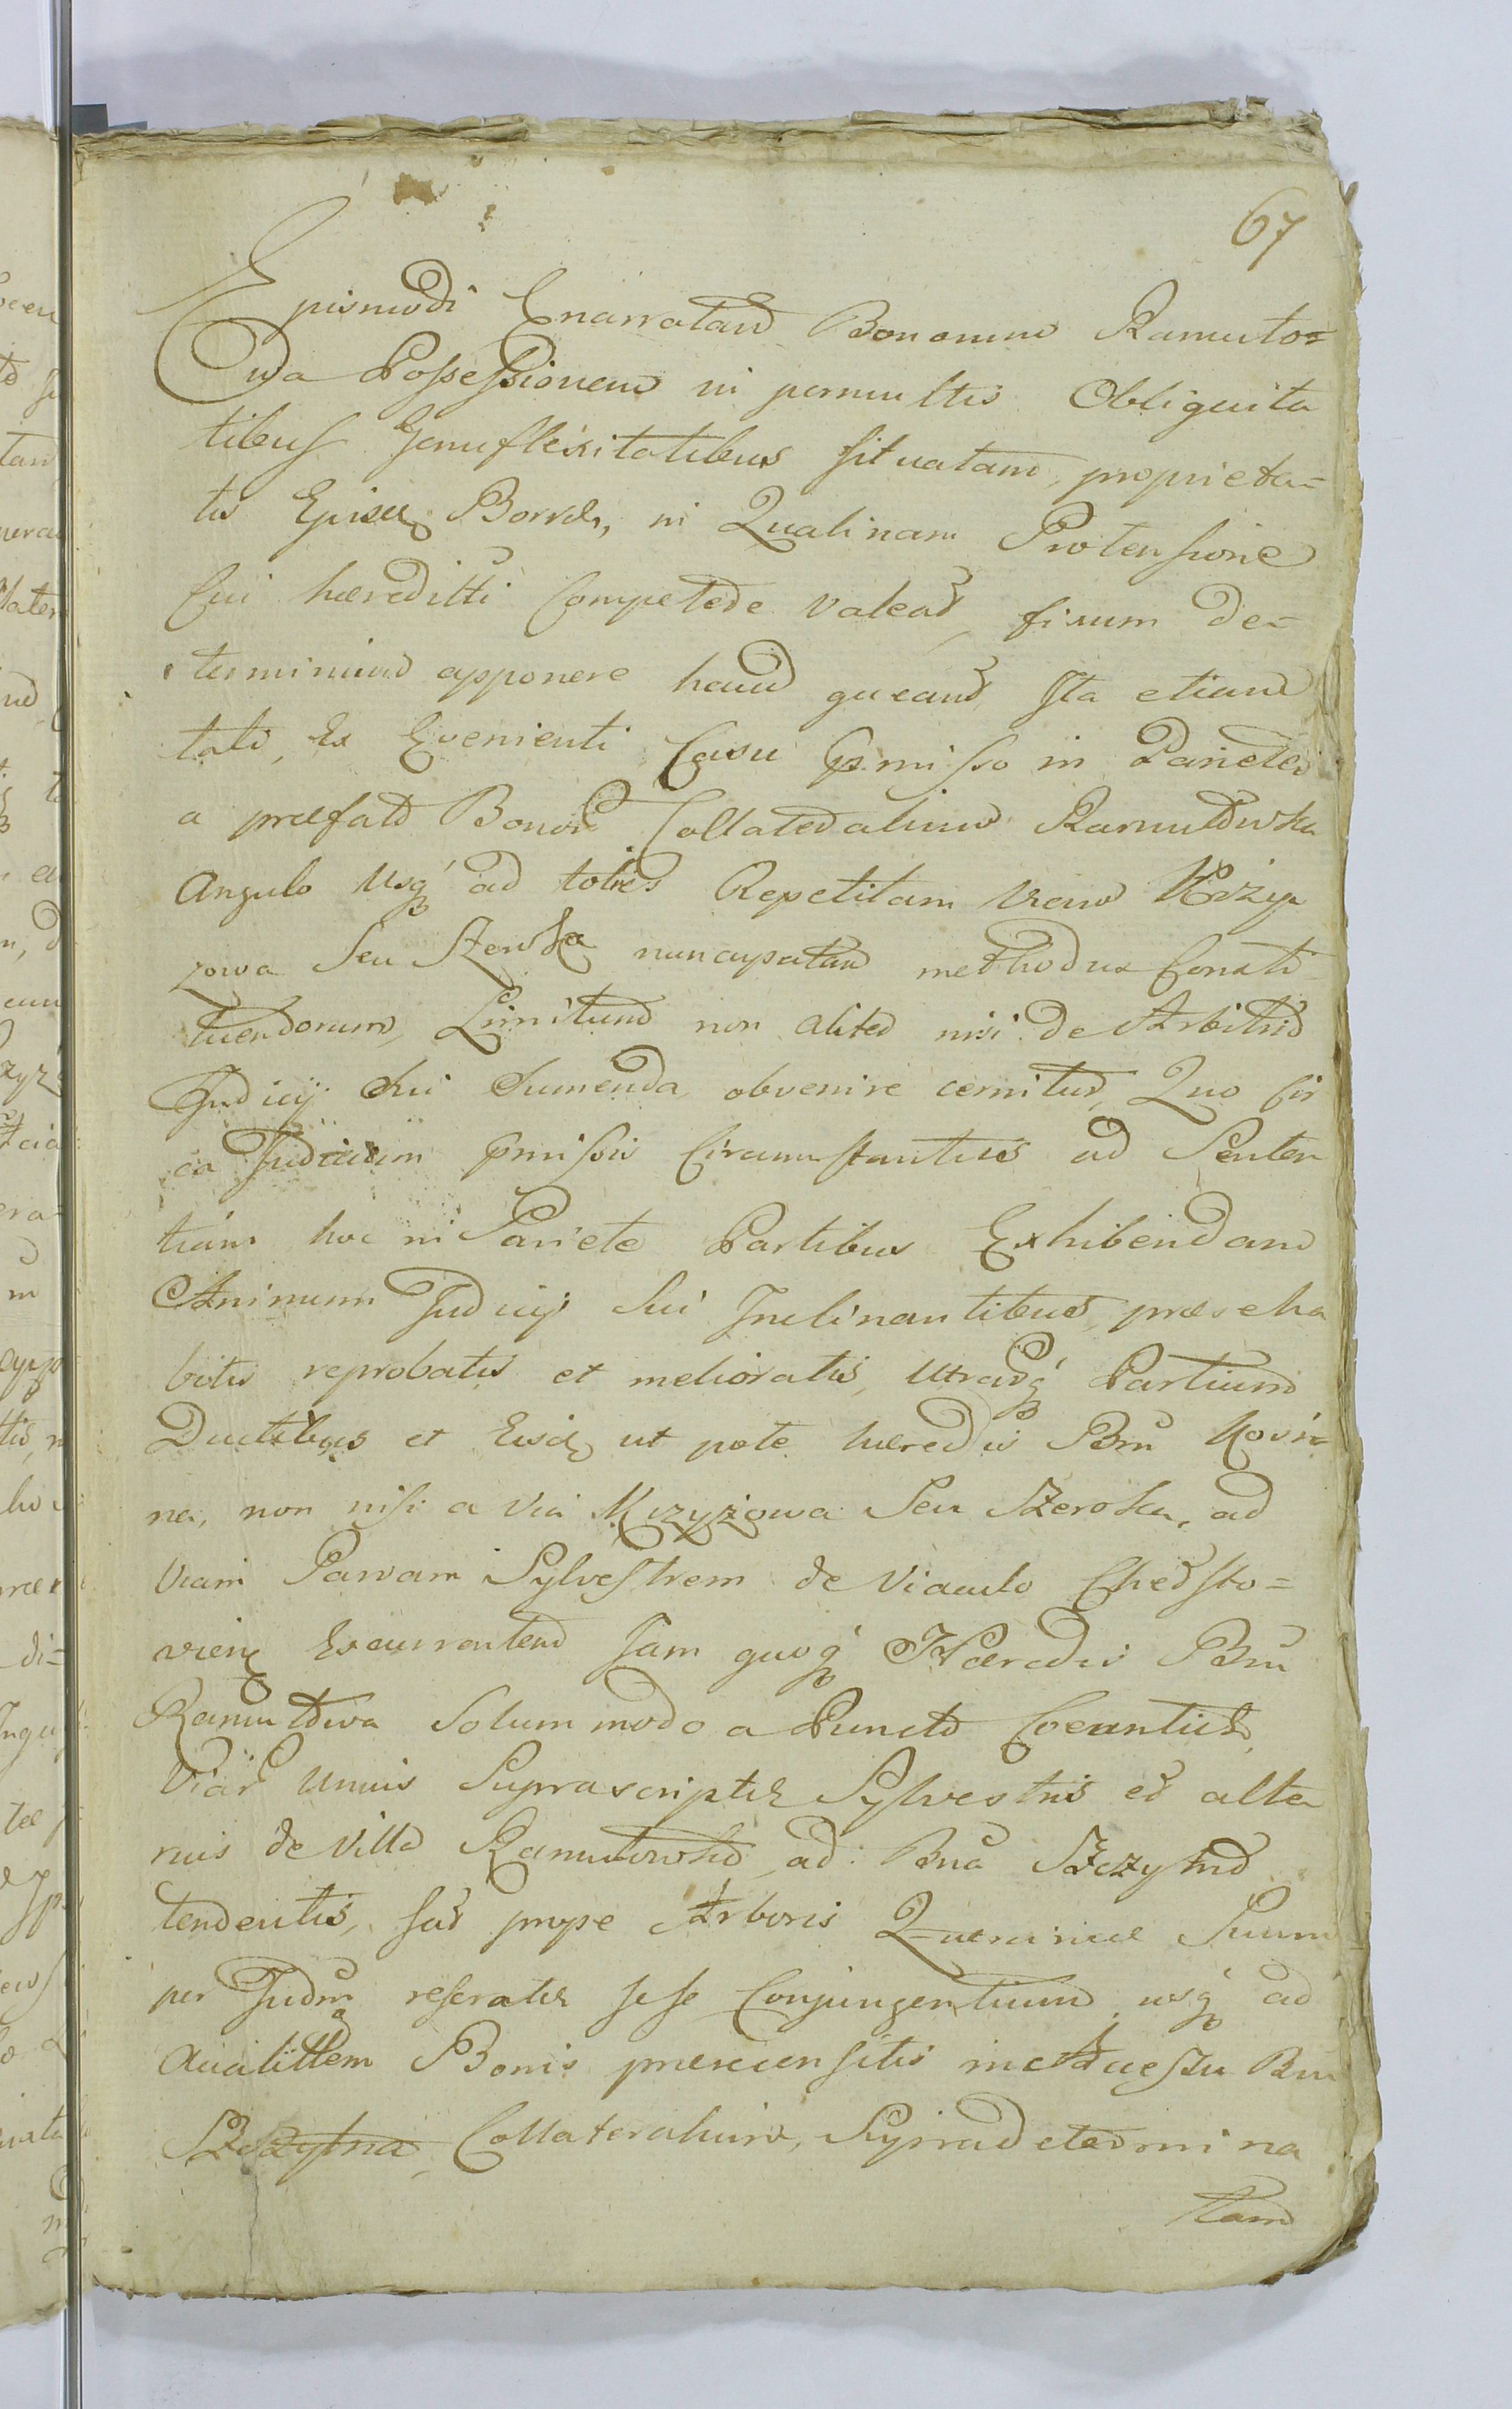 67
Ejusmodi Enarratam Bonorum Ramuto=
wa Possessionem in permultis Obliquita
tibus Genuflexitatibus situatam, proprieta=
tis Bonor, in Qualinam Protensione
sui hæreditti Competere valeat, fixum de=
terminium apponere haud queant, Ita etiam
tali, Ex Evenienti Casu pmisso in Pariete
a præfato Bonor Collateralium Ramutowka
Angulo Usq ad toties Repetitam Viam Krzyz
zowa Seu nuncupatam methodus Consti
tuendorum, Limitum non aliter nisi de Arbitrio
Judicij Sui Sumenda obvenire cernitur, Quo Cir
ca Judicium pmissis Circumstantiis ad Senten
tiam hoc in Pariete Partibus Exhibendam
Animum Judicij Sui Inclinantibus, præeha
bitis reprobatis et melioratis, Utrarq Partium
Ductibus et Eisd ut pote hæredis Bru Rosie
na, non nisi a Via Krzyżowa Seu Szeroka, ad
Viam Parvam Sylvestrem de Viaculo
Excurrentem Jam quoq Hæredis Bru
Ramutowa Solummodo a Puncto Coeuntium
Viar Unius Suprascriptæ Sylvestris et alte
rius de Villa Ramutowko ad Bna Szczytno
tendentis, sat prope Arboris Quercinæ Suum
per Judm reserates sese Conjungentium usq ad
Acialittem Bonis præcensitis inc Bru
Szczytna Collateralium, Supradetermina
tam